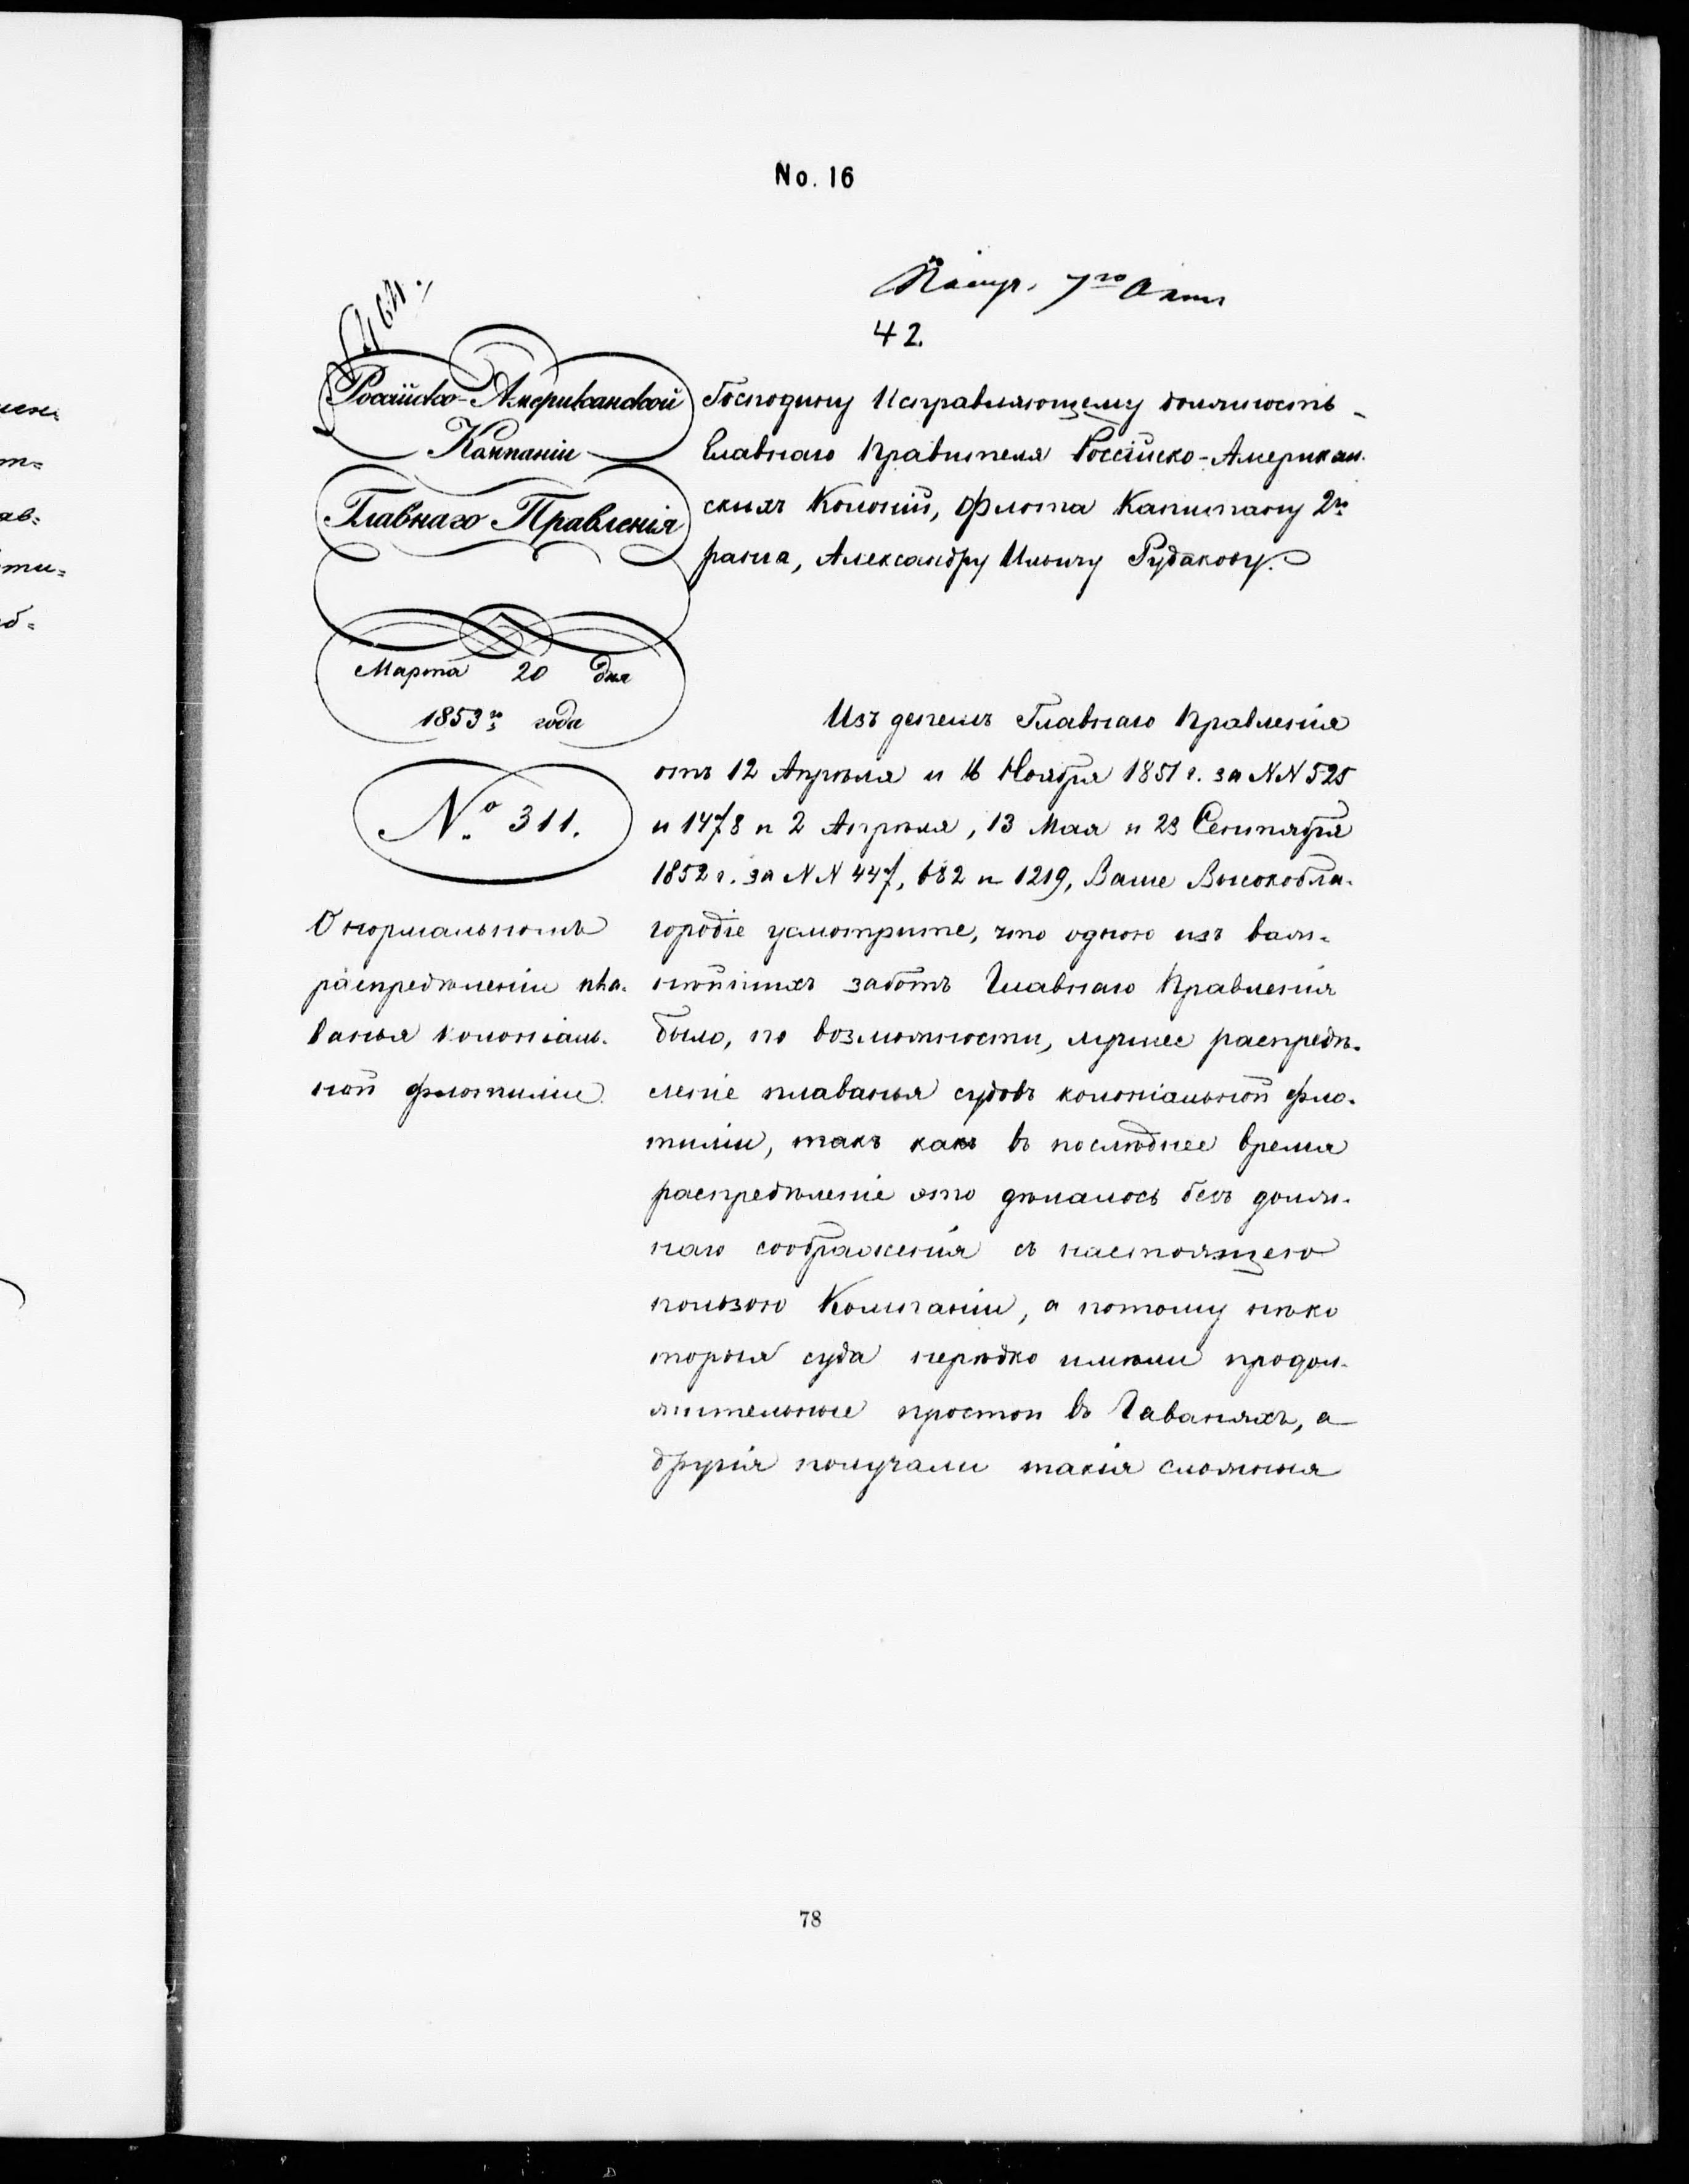 No. 16
42.
Россійско-Американской
Компаніи
Главнаго Правленія
Марта 20 дня
1853го года
№ 311.
О нормальномъ
распредѣленіи пла-
ванья колоніаль-
ной флотиліи
Господину Исправляющему должность
Главнаго Правителя Россійско-Американ-
скихъ Колоній, Флота Капитану 2го
ранга, Александру Ильичу Рудакову.
Изъ депешъ Главнаго Правленія
отъ 12 Апрѣля и 16 Ноября 1851 г. за NN 525
и 1478 и 2 Апрѣля, 13 Мая и 23 Сентября
1852 г. за NN 447, 682 и 1219, Ваше Высокобла-
городіе усмотрите, что одною изъ важ-
нѣйшихъ заботъ Главнаго Правленія
было, по возможности, лучшее распредѣ-
леніе плаванья судовъ колоніальной фло-
тиліи, такъ какъ въ послѣднее время
распредѣленіе это дѣлалось безъ долж-
наго соображенія съ настоящею
пользою Компаніи, а потому нѣко
торыя суда нерѣдко имѣли продол-
жительные простои въ Гаваняхъ, а
другія получали такія сложныя
78